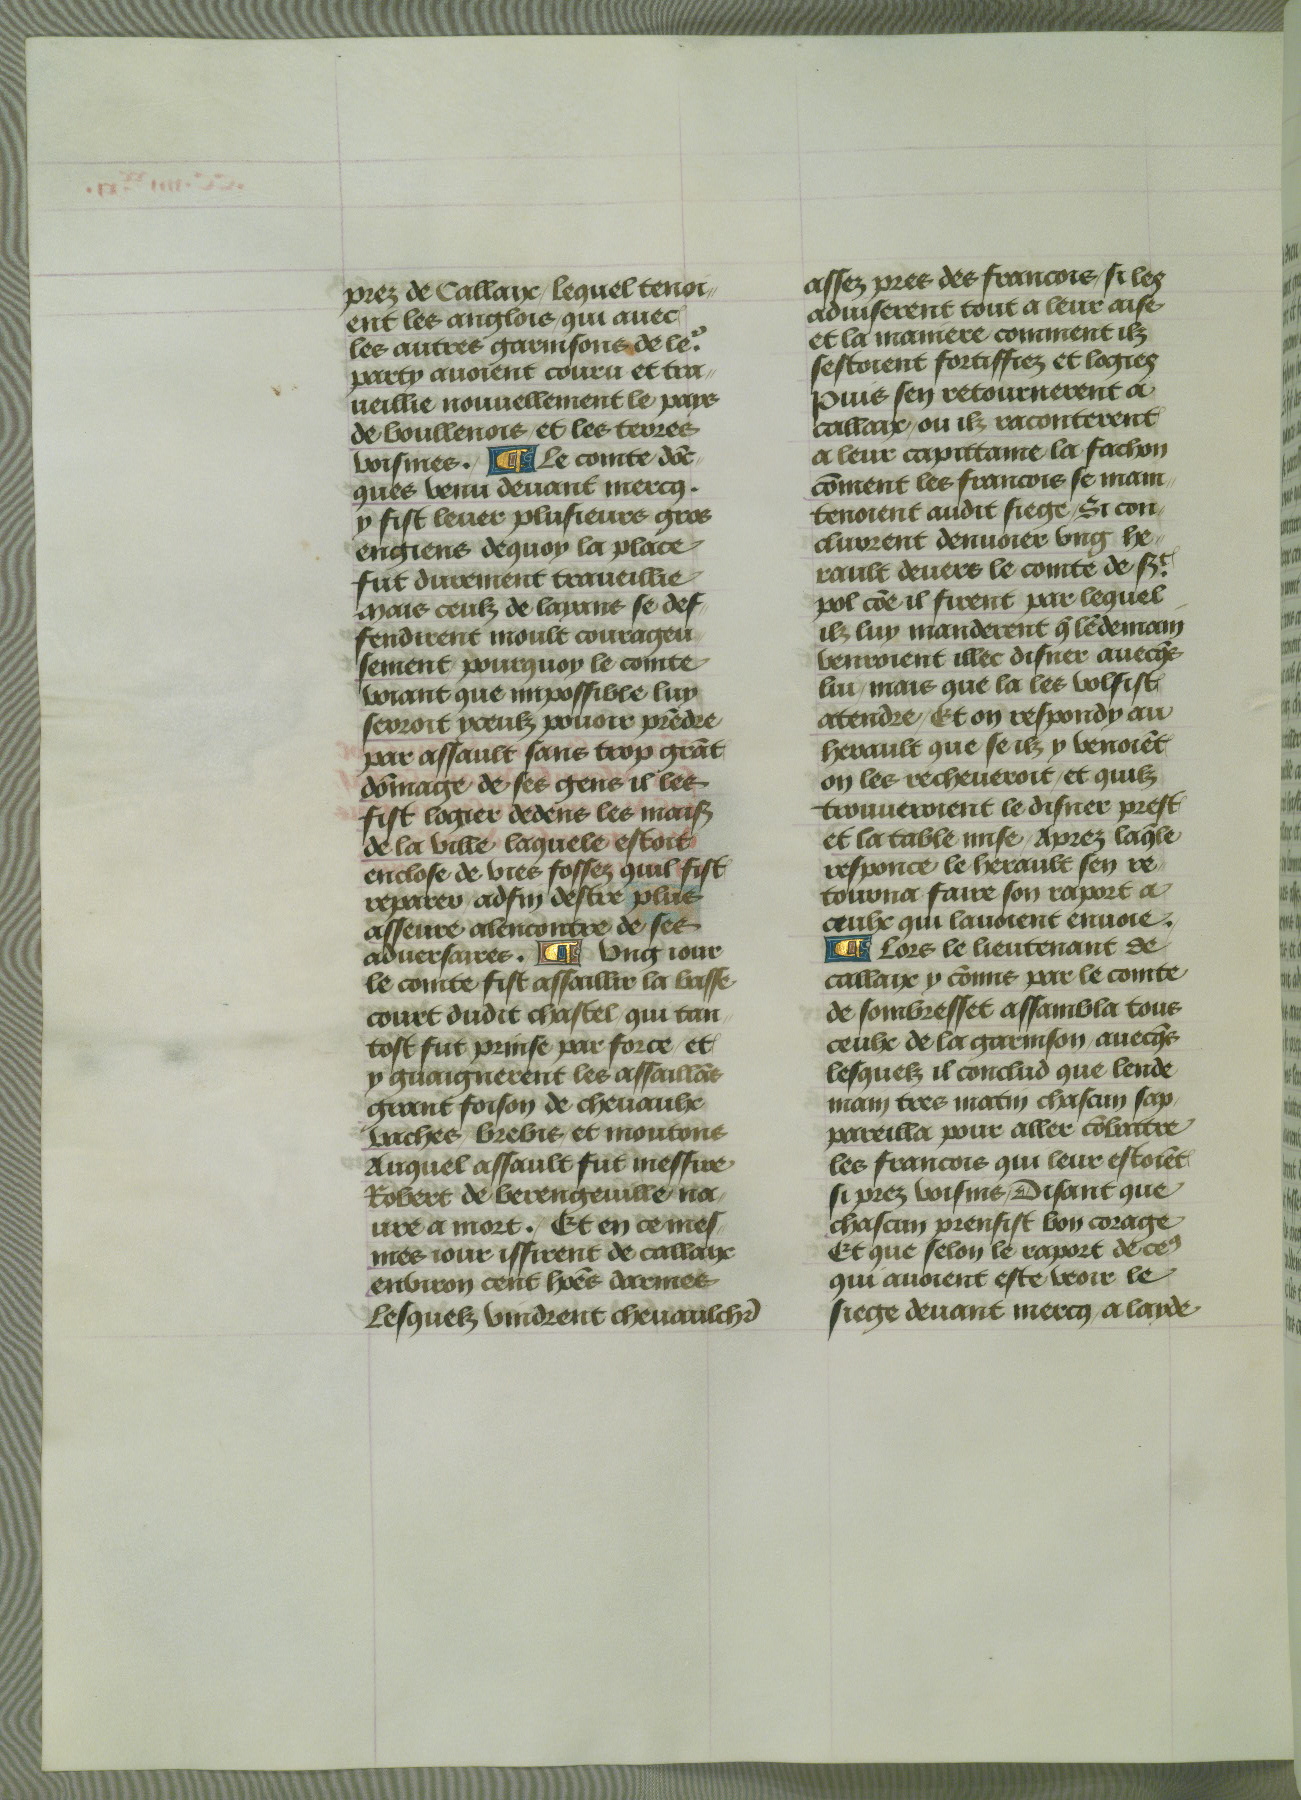 prez de Callaix / lequel tenoi〃
ent les anglois / qui auec
les autres garnisons de leᵒ.
party auoient couru et tra〃
ueillie nouuellement le pays
de boullenois / et les terres
voisines . ¶ Le comte dōc〃
ques venu deuant mercq .
y fist leuer plusieurs gros
engiens dequoy la place
fut durement traueillie
Mais ceulz de layans se def〃
fendirent moult courageu〃
sement / pourquoy le comte
voiant que impossible luy
seroit yceulz pouoir prēdre
par assault sans trop grāt
dōmage de ses gens il les
fist logier dedens les maisz
de la ville / laquele estoit
enclose de vies fossez quil fist
reparer / adfin destre plus
asseure alencontre de ses
aduersaires . ¶ Vng iour
le comte fist assaillir la basse
court dudit chastel / qui tan〃
tost fut prinse par force / et
y guaignerent les assaillās
grant foison de cheuaulx
vaches / brebis et moutons
Auquel assault fut messire
Robert de berengeuille na〃
ure a mort . / Et en ce mes〃
mes iour issirent de callaix
enuiron cent hōēs darmes
Lesquelz vindrent cheuaulchr̄
assez pres des francois / si les
aduiserent tout a leur aise
et la maniere comment ilz
sestoient fortiffiez et logies
Puis sen retournerent a
callaix / ou ilz raconterent
a leur capittaine la fachon
cōment les francois se main〃
tenoient audit siege / Si con〃
clurent denuoier vng he〃
rault deuers le comte de sᵗ.
pol / cōe il firent par lequel
ilz luy manderent q̄ lēdemain
venroient illec disner auecq̄s
lui / mais que la les volsist
atendre / Et on respondy au
herault que se ilz y venoiēt
on les recheueroit / et quilz
trouueroient le disner prest
et la table mise / Aprez laq̄le
responce le herault sen re〃
tourna faire son raport a
ceulx qui lauoient enuoie .
¶ Lors le lieutenant de
callaix y cōmis par le comte
de sombresset assambla tous
ceulx de la garnison / auecq̄s
lesquelz il conclud que lende〃
main tres matin chascun sap〃
pareilla pour aller cōbattre
les francois qui leur estoiēt
si prez voisins / Disant que
chascun prensist bon corage
Et que selon le raport de ceꝰ
qui auoient este veoir le
siege deuant mercq / a layde